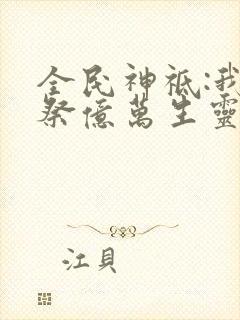 全民神祇:我
祭億萬生靈
江貝